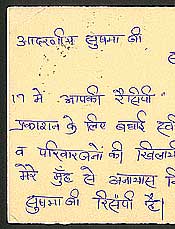 आदरणीय सुषमा जी
17 मे आपकी रैसीपी
प्रकाशन के लिए बधाई
व परिवारजनों की खिला
मेरे मुंह से अनायास
सुषमा जी रैसीपी है।